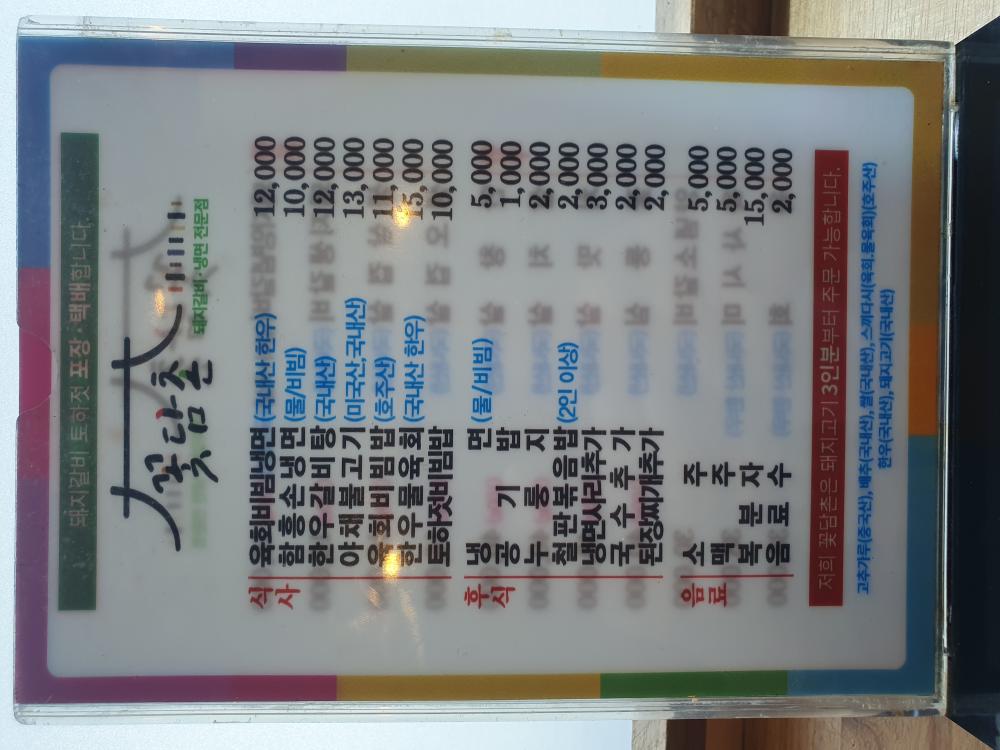 돼지갈비 토하젓 포장·택배합니다.
꽃담촌
돼지갈비·냉면 전문점
식사
육회비빔냉면 (국내산 한우) 12,000
함흥손냉면 (물/비빔) 10,000
한우갈비탕 (국내산) 12,000
야채불고기 (미국산,국내산) 13,000
육회비빔밥 (호주산) 11,000
한우물육회 (국내산 한우) 15,000
토하젓비빔밥 10,000
후식
냉면 (물/비빔) 5,000
공기밥 1,000
누룽지 2,000
철판볶음밥 (2인 이상) 2,000
냉면사리추가 3,000
국수추가 2,000
된장찌개추가 2,000
음료
소주 5,000
맥주 5,000
복분자 15,000
음료수 2,000
저희 꽃담촌은 돼지고기 3인분부터 주문 가능합니다.
고추가루(중국산), 배추(국내산), 쌀(국내산), 스끼다시(육회,물육회)(호주산)
한우(국내산), 돼지고기(국내산)